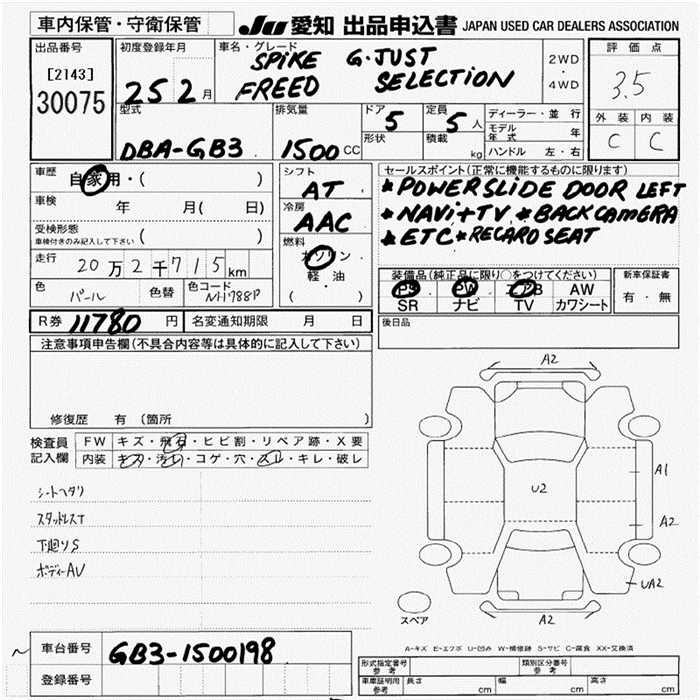 車内保管・守衛保管
JU 愛知 出品申込書 JAPAN USED CAR DEALERS ASSOCIATION
出品番号
[2143]
30075
初度登録年月
25 2 月
車名・グレード
SPIKE G.JUST
FREED SELECTION
2WD
・
4WD
評価点
3.5
外装 内装
C C
型式
DBA-GB3
排気量
1500 CC
ドア 5
形状
定員 5 人
積載 kg
ディーラー・並行
モデル年式 年
ハンドル 左・右
車歴
自家用・( )
車検 年 月( 日)
受検形態
車検付きのみ記入して下さい ( )
走行 20万2千715km
色 パール 色替 色コード NH788P
R券 11780 円 名変通知期限 月 日
シフト
AT
冷房
AAC
燃料
ガソリン
軽・油
( )
セールスポイント(正常に機能するものに限ります)
*POWERSLIDE DOOR LEFT
*NAVI+TV *BACK CAMERA
*ETC *RECARO SEAT
装備品(純正品に限り○をつけてください)
PS PW エアB AW
SR ナビ TV カワシート
新車保証書
有・無
後日品
注意事項申告欄(不具合内容等は具体的に記入して下さい)
修復歴 有 (箇所 )
検査員記入欄
FW キズ・飛石・ヒビ割・リペア跡・X要
内装 キズ・汚レ・コゲ・穴・スレ・キレ・破レ
シートヘタリ
スタッドレスT
下廻りS
ボディーAV
A2
U2
A1
A2
UA2
A2
スペア
車台番号 GB3-1500198
登録番号
A-キズ E-エクボ U-凹み W-補修跡 S-サビ C-腐食 XX-交換済
形式指定番号 参考
類別区分番号 参考
車庫証明用 参考 長さ cm 幅 cm 高さ cm